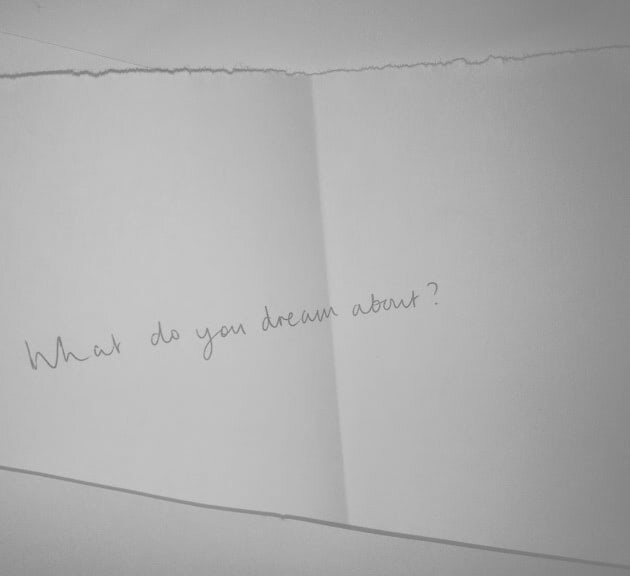 What do you dream about?